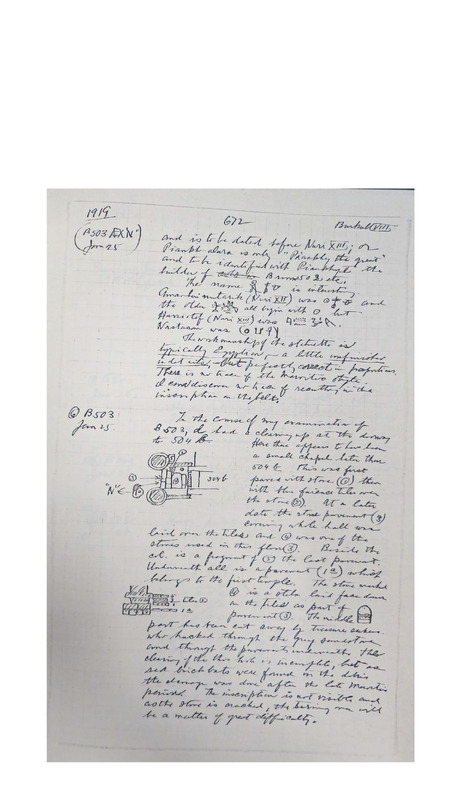 1919
672
Barkal VIII.
(B503 EX N)
Jan 25
and is to be dated before Nuri XIII; or
Piankh-alara is only "Piankhy the great"
and to be identified with Piankhy the
builder of B 502 etc.
The name is interesting
(Nuri XII) was and
the older all begin with but
Harsiotef (Nuri XIII) was
Nastasan was
The workmanship of the statuette is
typically Egyptian, a little
in details, but perfectly correct in proportions.
There is no trace of the Meroitic style.
I could discern no trace of recutting in the
inscription on the belt.
B503
Jan 25.
In the course of my examination of
B 503, I had a clearing up at the doorway
to 504
Here there appears to have been
a small chapel later than
504 b. This was first
paved with stone (1) then
with blue faience tiles over
the stone (2). At a later
date the stone pavement (3)
covering whole hall was
504 b
"N"
laid over the tiles and was one of the
stones used in this floor (3). Beside the
col. is a fragment of the last pavement.
Underneath all is a pavement (1a) which
belongs to the first temple. The stone marked
is a stela laid face down
on the tiles as part of
pavement (3). The middle
tiles
1a
part has been cut away by treasure seekers
who hacked through the grey sandstone
and through the pavements underneath. The
clearing of the hole is incomplete, but as
red brickbats were found in the debris
the damage was done after the late Meroitic
period. The inscription is not visible and
as the stone is cracked, the turning over will
be a matter of great difficulty.